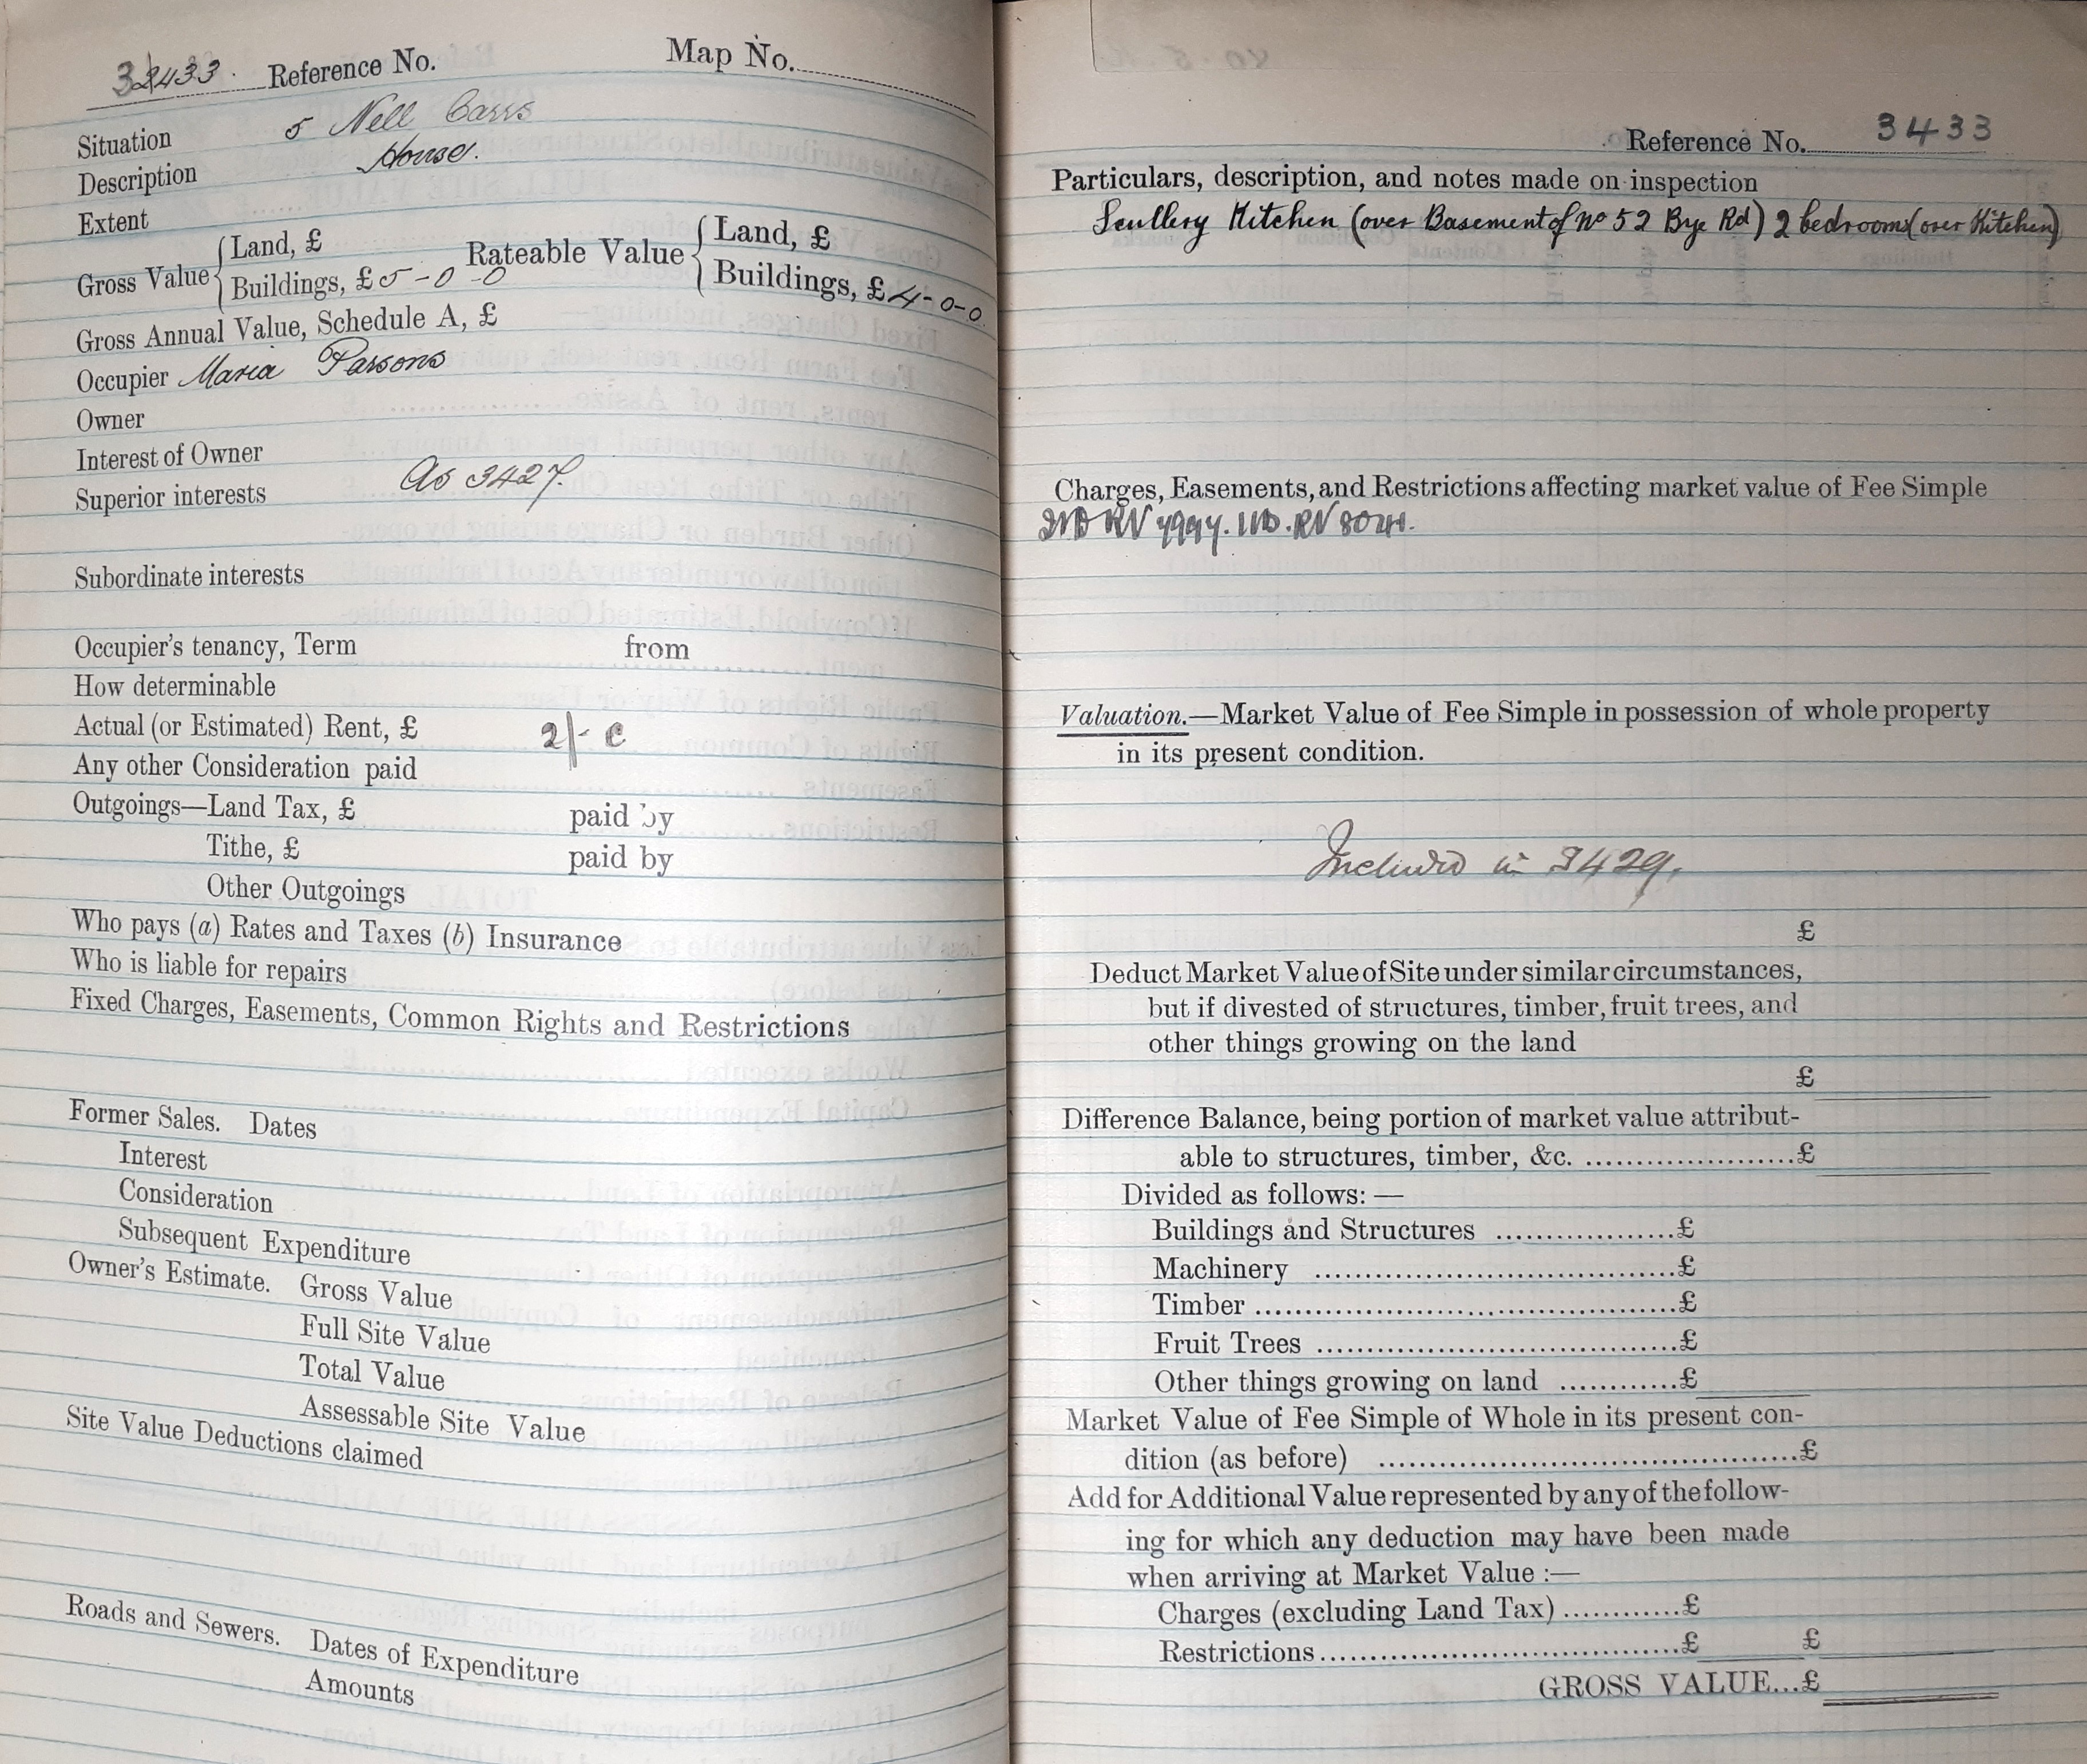 3433. Reference No. Map No.
Situation 5 Nell Carrs
Description House.
Extent
Gross Value { Land, £
Buildings, £ 5-0-0
Rateable Value { Land, £
Buildings, £ 4-0-0
Gross Annual Value, Schedule A, £
Occupier Maria Parsons
Owner
Interest of Owner
Superior interests As 3427.
Subordinate interests
Occupier's tenancy, Term from
How determinable
Actual (or Estimated) Rent, £ 2/- C
Any other Consideration paid
Outgoings—Land Tax, £ paid by
Tithe, £ paid by
Other Outgoings
Who pays (a) Rates and Taxes (b) Insurance
Who is liable for repairs
Fixed Charges, Easements, Common Rights and Restrictions
Former Sales. Dates
Interest
Consideration
Subsequent Expenditure
Owner's Estimate. Gross Value
Full Site Value
Total Value
Assessable Site Value
Site Value Deductions claimed
Roads and Sewers. Dates of Expenditure
Amounts
Reference No. 3433
Particulars, description, and notes made on inspection
Scullery Kitchen (over Basement of No 52 Bye Rd) 2 bedrooms (over Kitchen)
Charges, Easements, and Restrictions affecting market value of Fee Simple
Valuation.—Market Value of Fee Simple in possession of whole property
in its present condition.
Included in 3429.
£
Deduct Market Value of Site under similar circumstances,
but if divested of structures, timber, fruit trees, and
other things growing on the land
£
Difference Balance, being portion of market value attribut-
able to structures, timber, &c. ......................£
Divided as follows: —
Buildings and Structures ..................£
Machinery ....................................£
Timber ..........................................£
Fruit Trees ....................................£
Other things growing on land ............£
Market Value of Fee Simple of Whole in its present con-
dition (as before) ..........................................£
Add for Additional Value represented by any of the follow-
ing for which any deduction may have been made
when arriving at Market Value :—
Charges (excluding Land Tax) ............£
Restrictions....................................£ £
GROSS VALUE...£